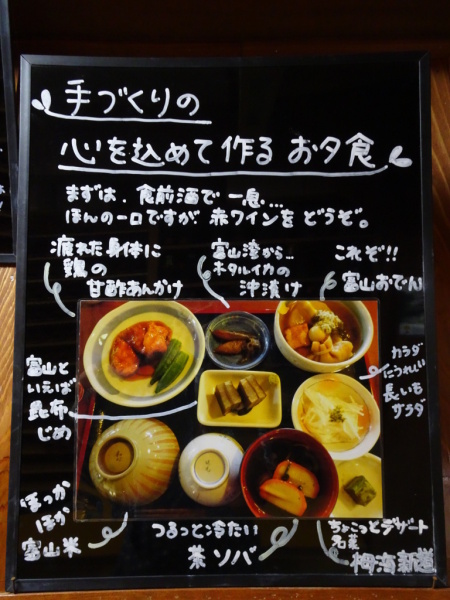 手づくりの
心を込めて作る お夕食
まずは、食前酒で一息...
ほんの一口ですが 赤ワインを どうぞ。
疲れた身体に
鶏の
甘酢あんかけ
富山湾から...
ホタルイカの
沖漬け
これぞ!!
富山おでん
カラダ
にうれしい
長いも
サラダ
富山と
いえば
昆布
じめ
ほっか
ほか
富山米
つるっと冷たい
茶ソバ
ちょこっとデザート
名菓
栂海新道